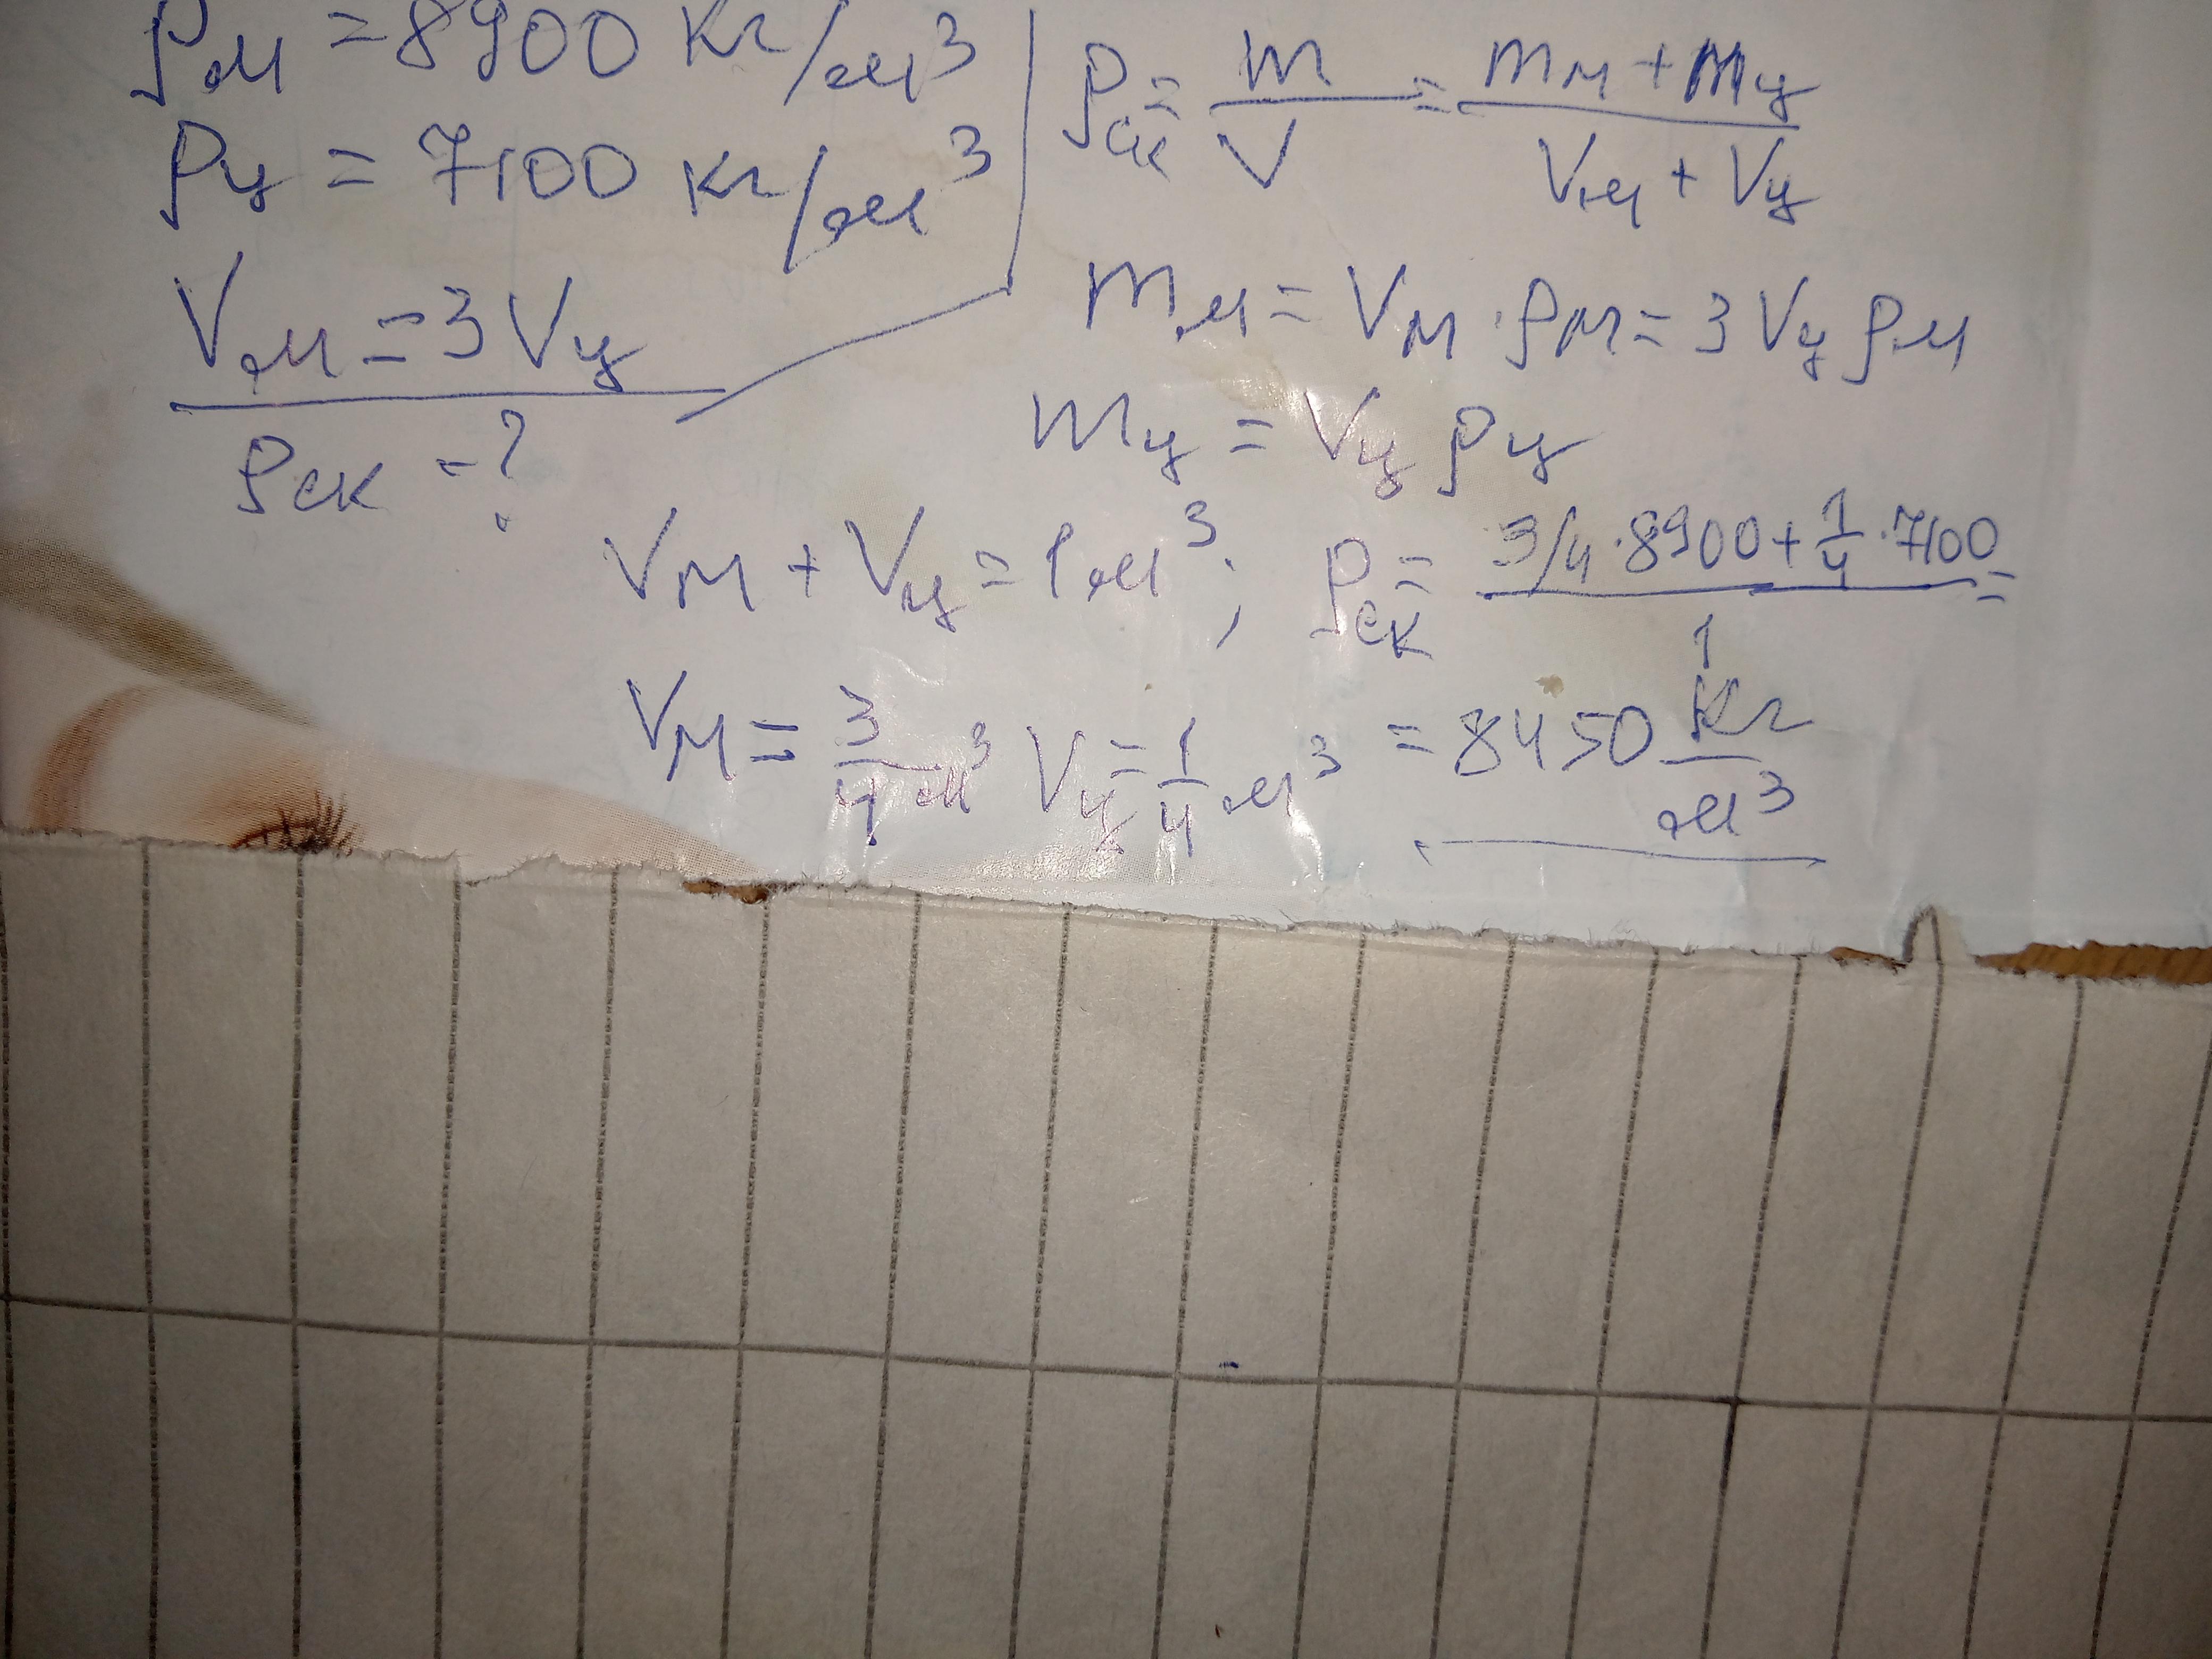 ρм = 8900 кг/м³
ρц = 7100 кг/м³
Vм = 3 Vц
ρск - ?
ρск = m/V = (mм + mц)/(Vм + Vц)
mм = Vм · ρм = 3 Vц ρм
mц = Vц ρц
Vм + Vц = 1 м³; ρск = (3/4 · 8900 + 1/4 · 7100)/1 =
Vм = 3/4 м³ Vц = 1/4 м³ = 8450 кг/м³